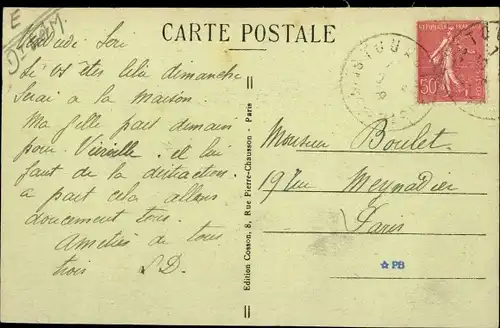 E
CARTE POSTALE
Vendredi Soir
Si vs êtes libre dimanche
Serai à la maison.
Ma fille part demain
pour Vierville et lui
faut de la distraction.
a part cela allons
doucement tous.
Amitiés de tous
trois S.D.
Edition Cosson, 8, Rue Pierre-Chausson - Paris
REPUBLIQUE FRANÇAISE
50
Monsieur Boulet.
19 rue Meynadier
Paris
PB